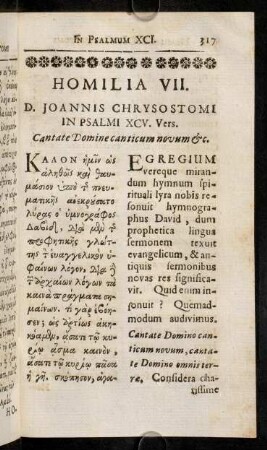 IN PSALMUM XCI. 317
HOMILIA VII.
D. JOANNIS CHRYSOSTOMI
IN PSALMI XCV. Vers.
Cantate Domine canticum novum &c.
ΚΑΛΟΝ ἡμῖν ὡς
ἀληθῶς καὶ θαυ-
μάσιον ὑπὸ τ πνευ-
ματικῆς ἀνεκρούσατο
λύρας ὁ ὑμνογράφος
Δαβίδ, διὰ μὲν τ
προφητικῆς γλώτ-
της τ εὐαγγελικὸν ὑ-
φαίνων λόγον, διὰ ἢ
τ ἀρχαίων λόγων τὰ
καινὰ πράγματα ση-
μαίνων. τί γὰρ
σεν; ὡς ἀρτίως ἀκη-
κόαμεν, ᾄσατε τῷ κυ-
ρίῳ ᾆσμα καινὸν,
ᾄσατε τῷ κυρίῳ πᾶσα
ἡ γῆ. σκόπησον, ἀγα-
EGREGIUM
vereque miran-
dum hymnum spi-
rituali lyra nobis re-
sonuit hymnogra-
phus David, dum
prophetica lingua
sermonem texuit
evangelicum, & an-
tiquis sermonibus
novas res significa-
vit. Quid enim in-
sonuit ? Quemad-
modum audivimus.
Cantate Domino can-
ticum novum, canta-
te Domino omnis ter-
ræ, Considera cha-
rissime